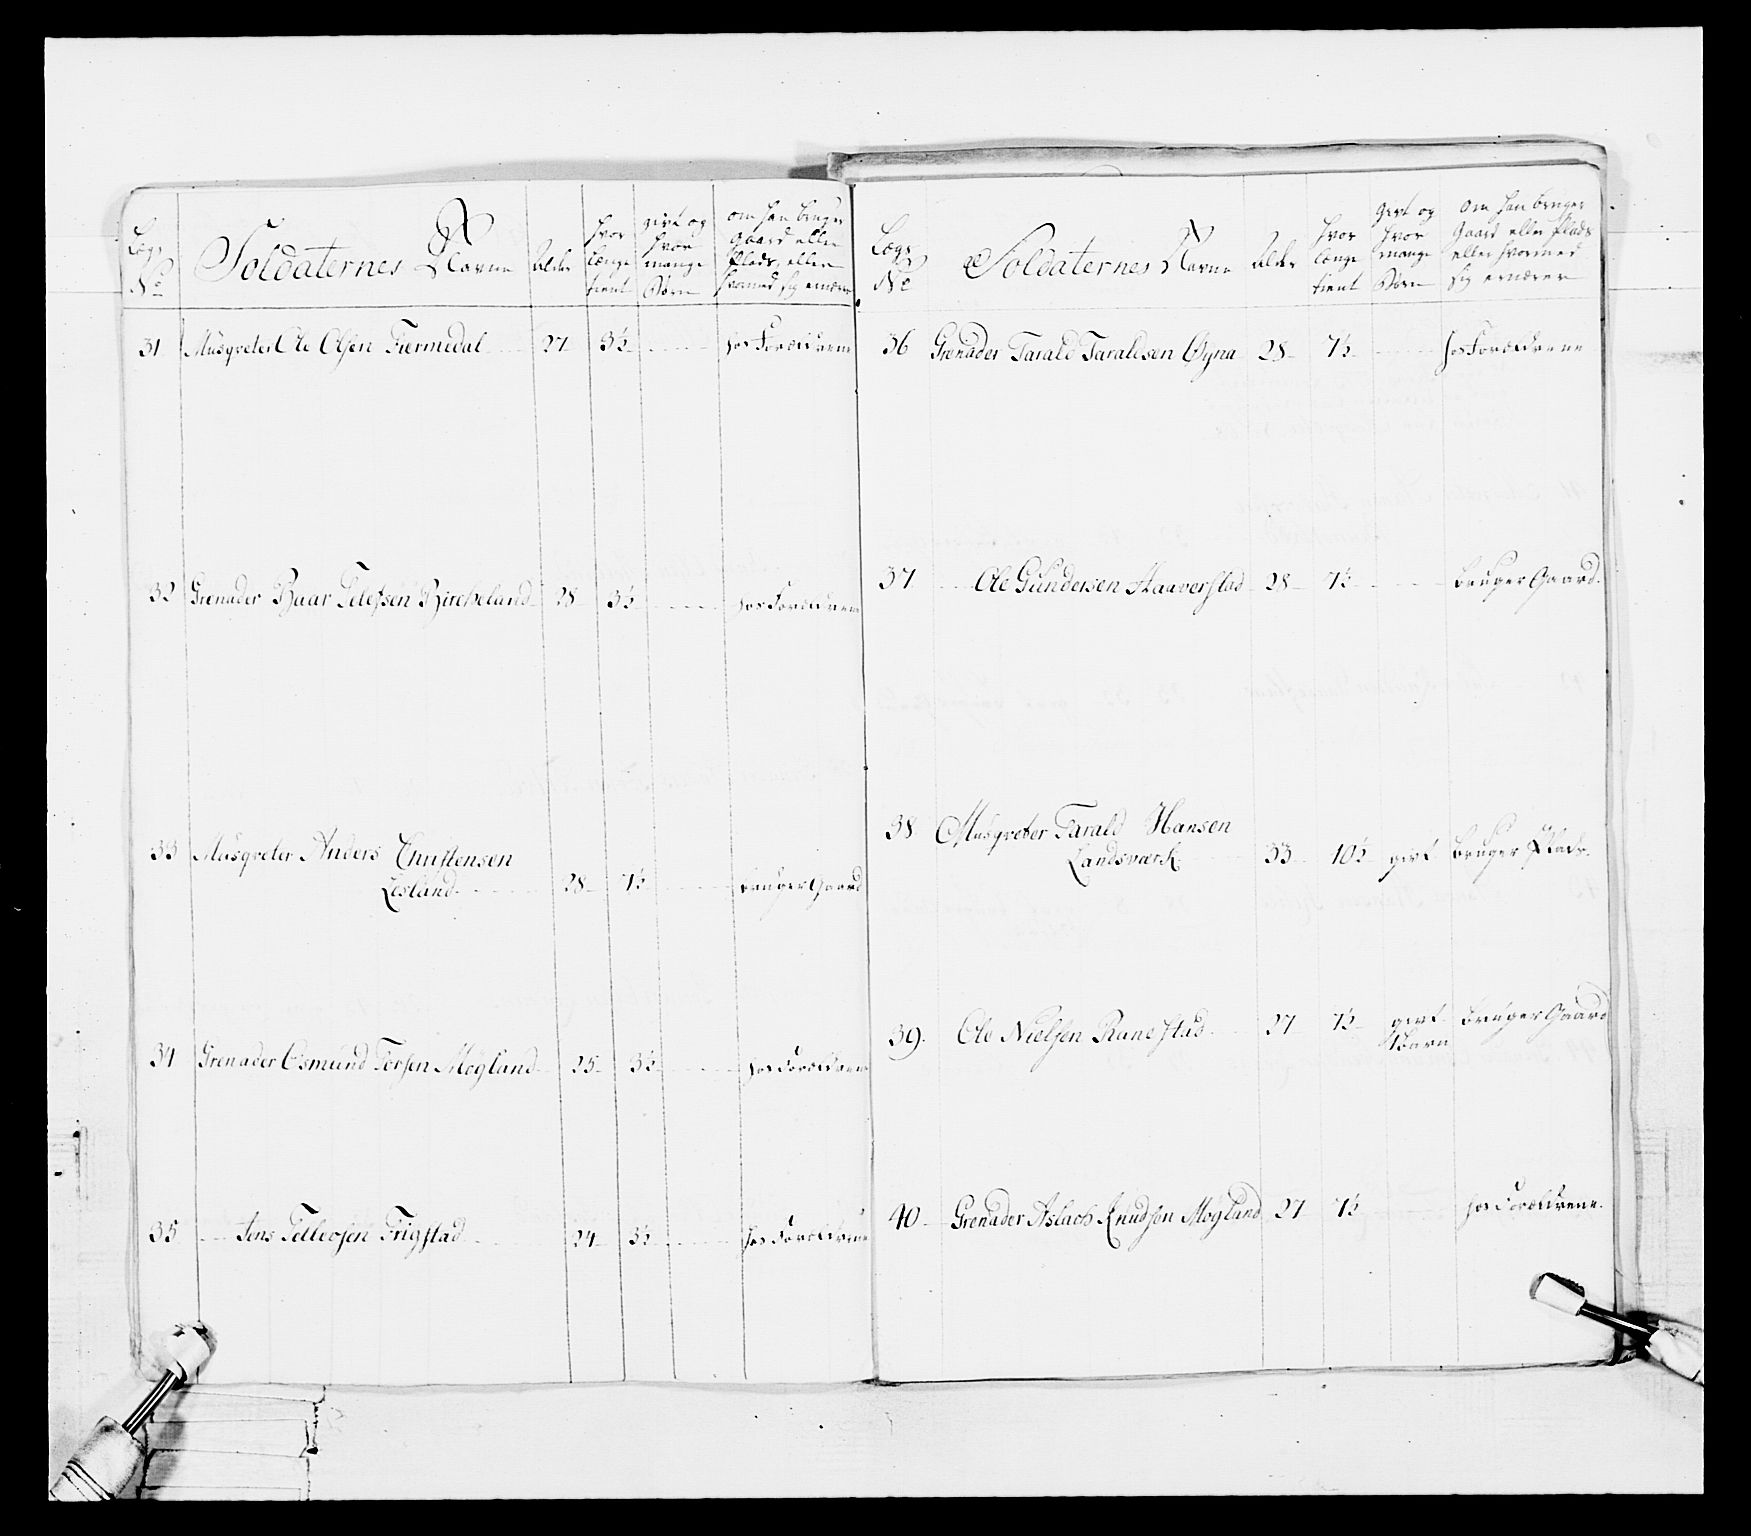 Lægs No Soldaternes Navne Alder hvor længe tient givt og hvor mange Børn om han bruger Gaard eller Plads, eller hvormed sig ernærer
31 Musqveter Ole Olsen Fiermedal 27 3½ hos Forældrene
32 Grenader Baar Tellefsen Bircheland 28 3½ hos Forældrene
33 Musqveter Anders Christensen
Lesland 28 7½ bruger Gaard
34 Grenader Osmund Torsen Møgland 25 3½ hos Forældrene
35 Jens Tellevsen Frigstad 24 3½ hos Forældrene
Lægs No Soldaternes Navne Alder hvor længe tient Givt og hvor mange Børn om han bruger Gaard eller Plads eller hvormed sig ernærer
36 Grenader Tarald Taraldsen Øyna 28 7½ hos Forældrene
37 Ole Gundersen Haaverstad 28 7½ bruger Gaard.
38 Musqveter Tarald Hansen
Landsværk 33 10½ givt bruger Plads.
39. Ole Nielsen Ranestad 27 7½ givt bruger Gaard
1 Barn
40 Grenader Aslach Knudsen Møgland 27 7½ hos Forældrene.